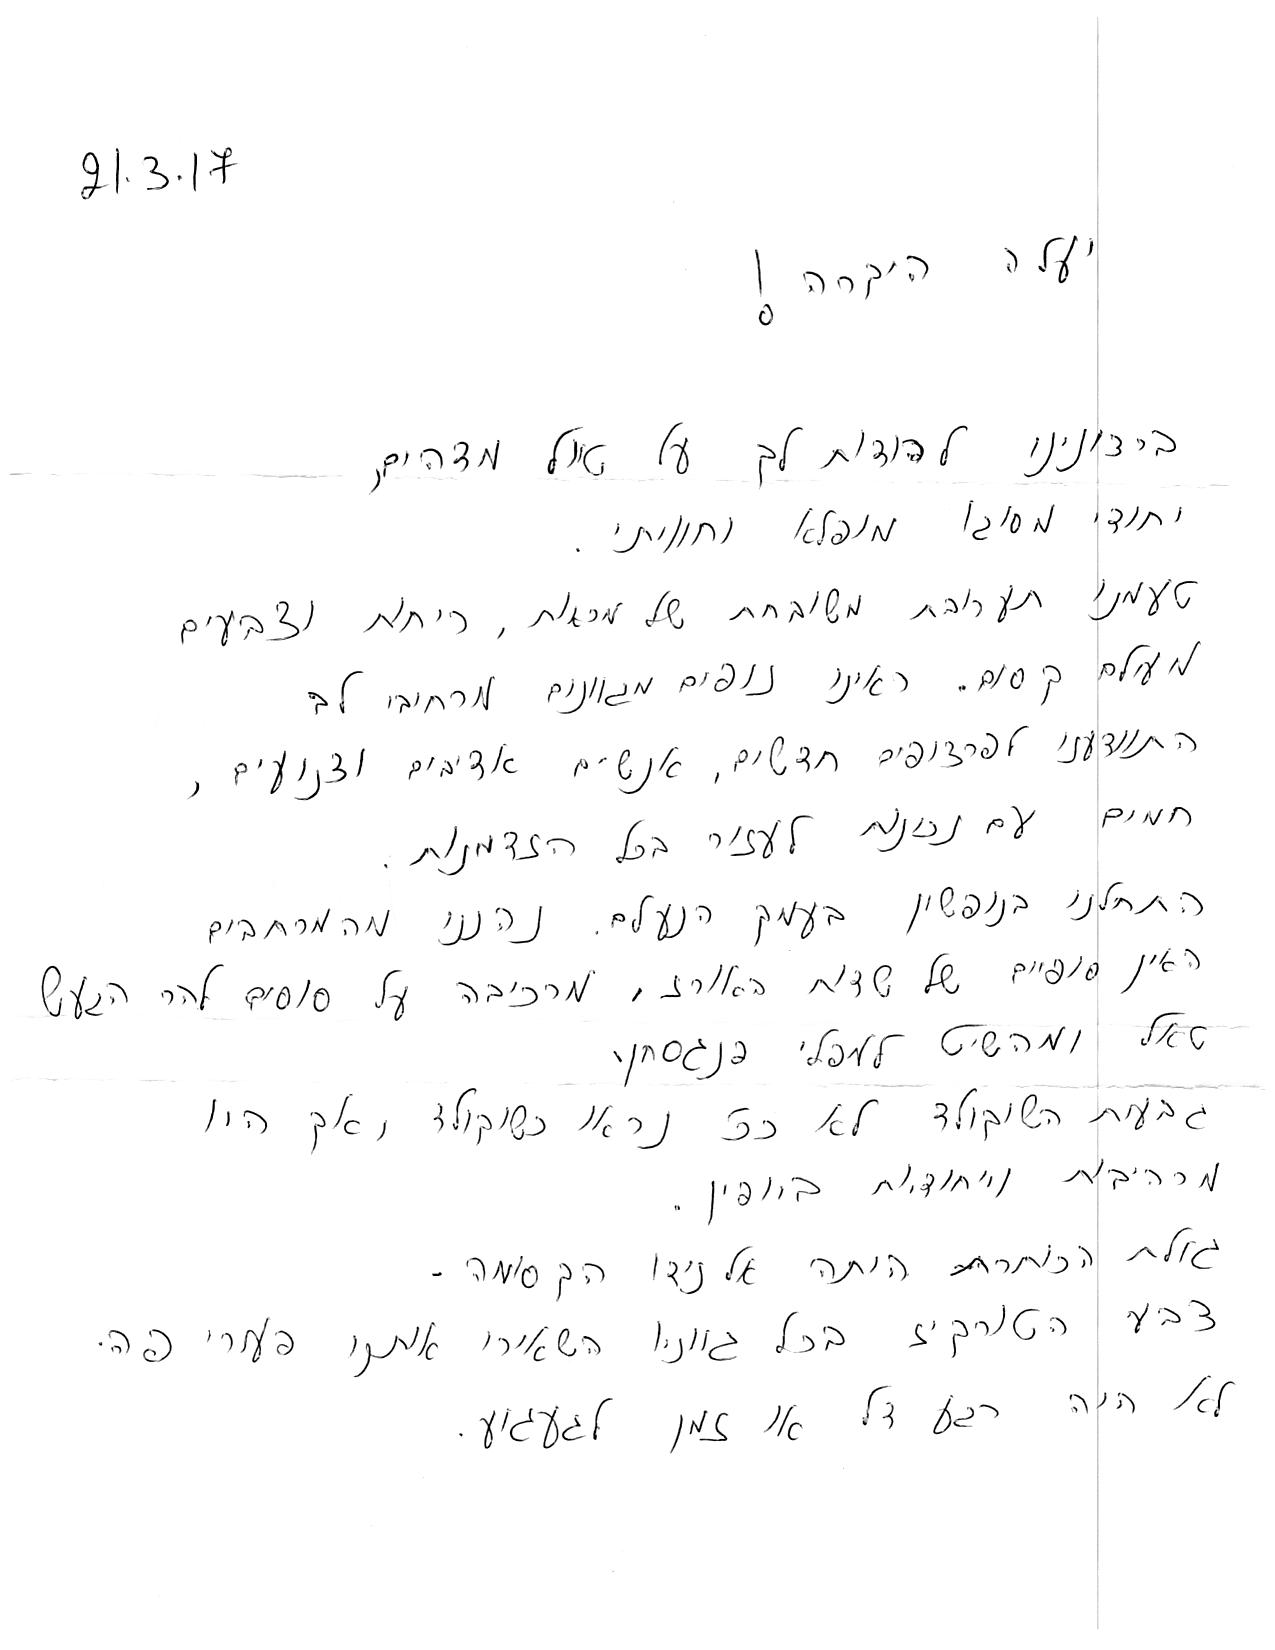 21.3.17
יעלה היקרה!
ברצונינו להודות לך על טיול מדהים,
יחודי מסוגו מופלא וחוויתי.
טעמנו תערובת משובחת של מראות, ריחות וצבעים
מעולם קסום. ראינו נופים מגוונים ומרחיבי לב
התוודענו לפרצופים חדשים, אנשים אדיבים וצנועים,
חמים עם נכונות לעזור בכל הזדמנות.
התחלנו בנופשון בעמק הנעלם. נהננו מהמרחבים
האין סופיים של שדות האורז, מרכיבה על סוסים להר הגעש
טאל ומהשיט למפלי פנגסחן.
גבעות השוקולד לא ככ נראו כשוקולד, אך היו
מרהיבות וייחודיות ביופין.
גולת הכותרת היתה אל נידו הקסומה -
צבע הטורקיז בכל גווניו השאירו אותנו פעורי פה.
לא היה רגע דל או זמן לגעגוע.